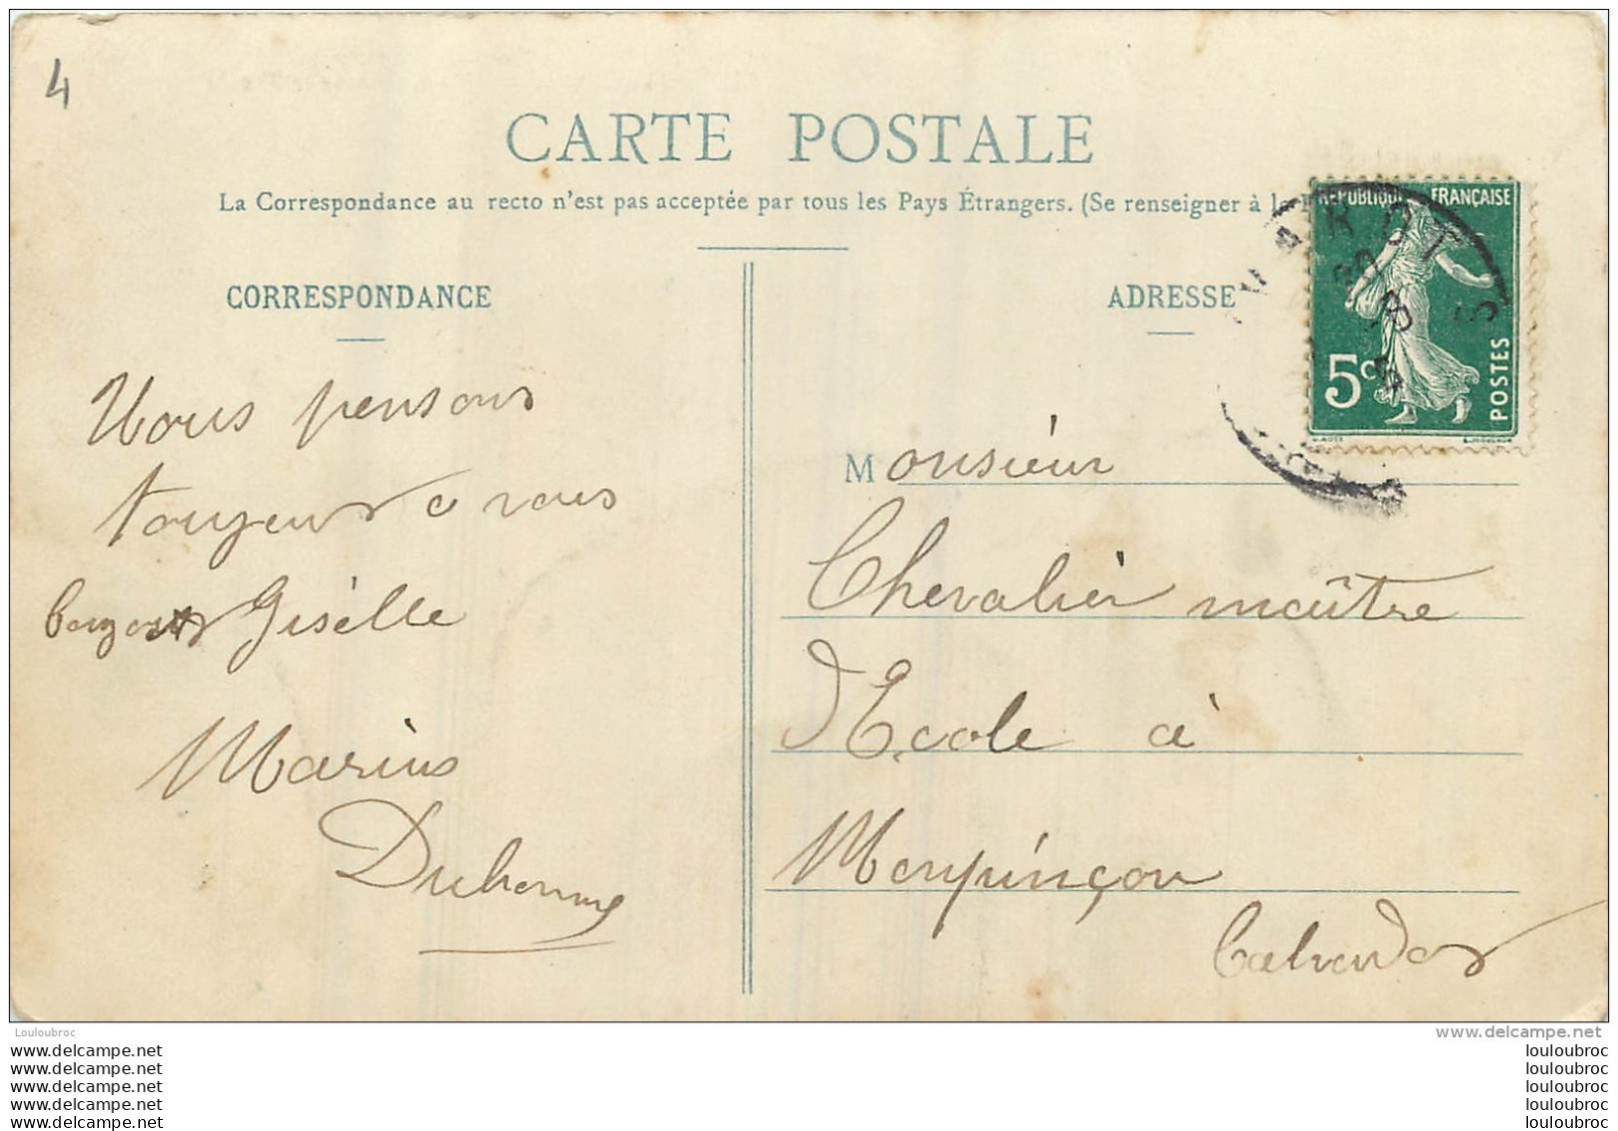 4
CARTE POSTALE
La Correspondance au recto n'est pas acceptée par tous les Pays Étrangers. (Se renseigner à la
CORRESPONDANCE
ADRESSE
RÉPUBLIQUE FRANÇAISE
5c
POSTES
Nous pensons
toujours a vous
Giséle
Marius
Duhomme
Monsieur
Chevalier maître
d'Ecole à
Monpinçon
Calvados
Louloubroc
www.delcampe.net
www.delcampe.net
www.delcampe.net
www.delcampe.net
www.delcampe.net
www.delcampe.net
louloubroc
louloubroc
louloubroc
louloubroc
louloubroc